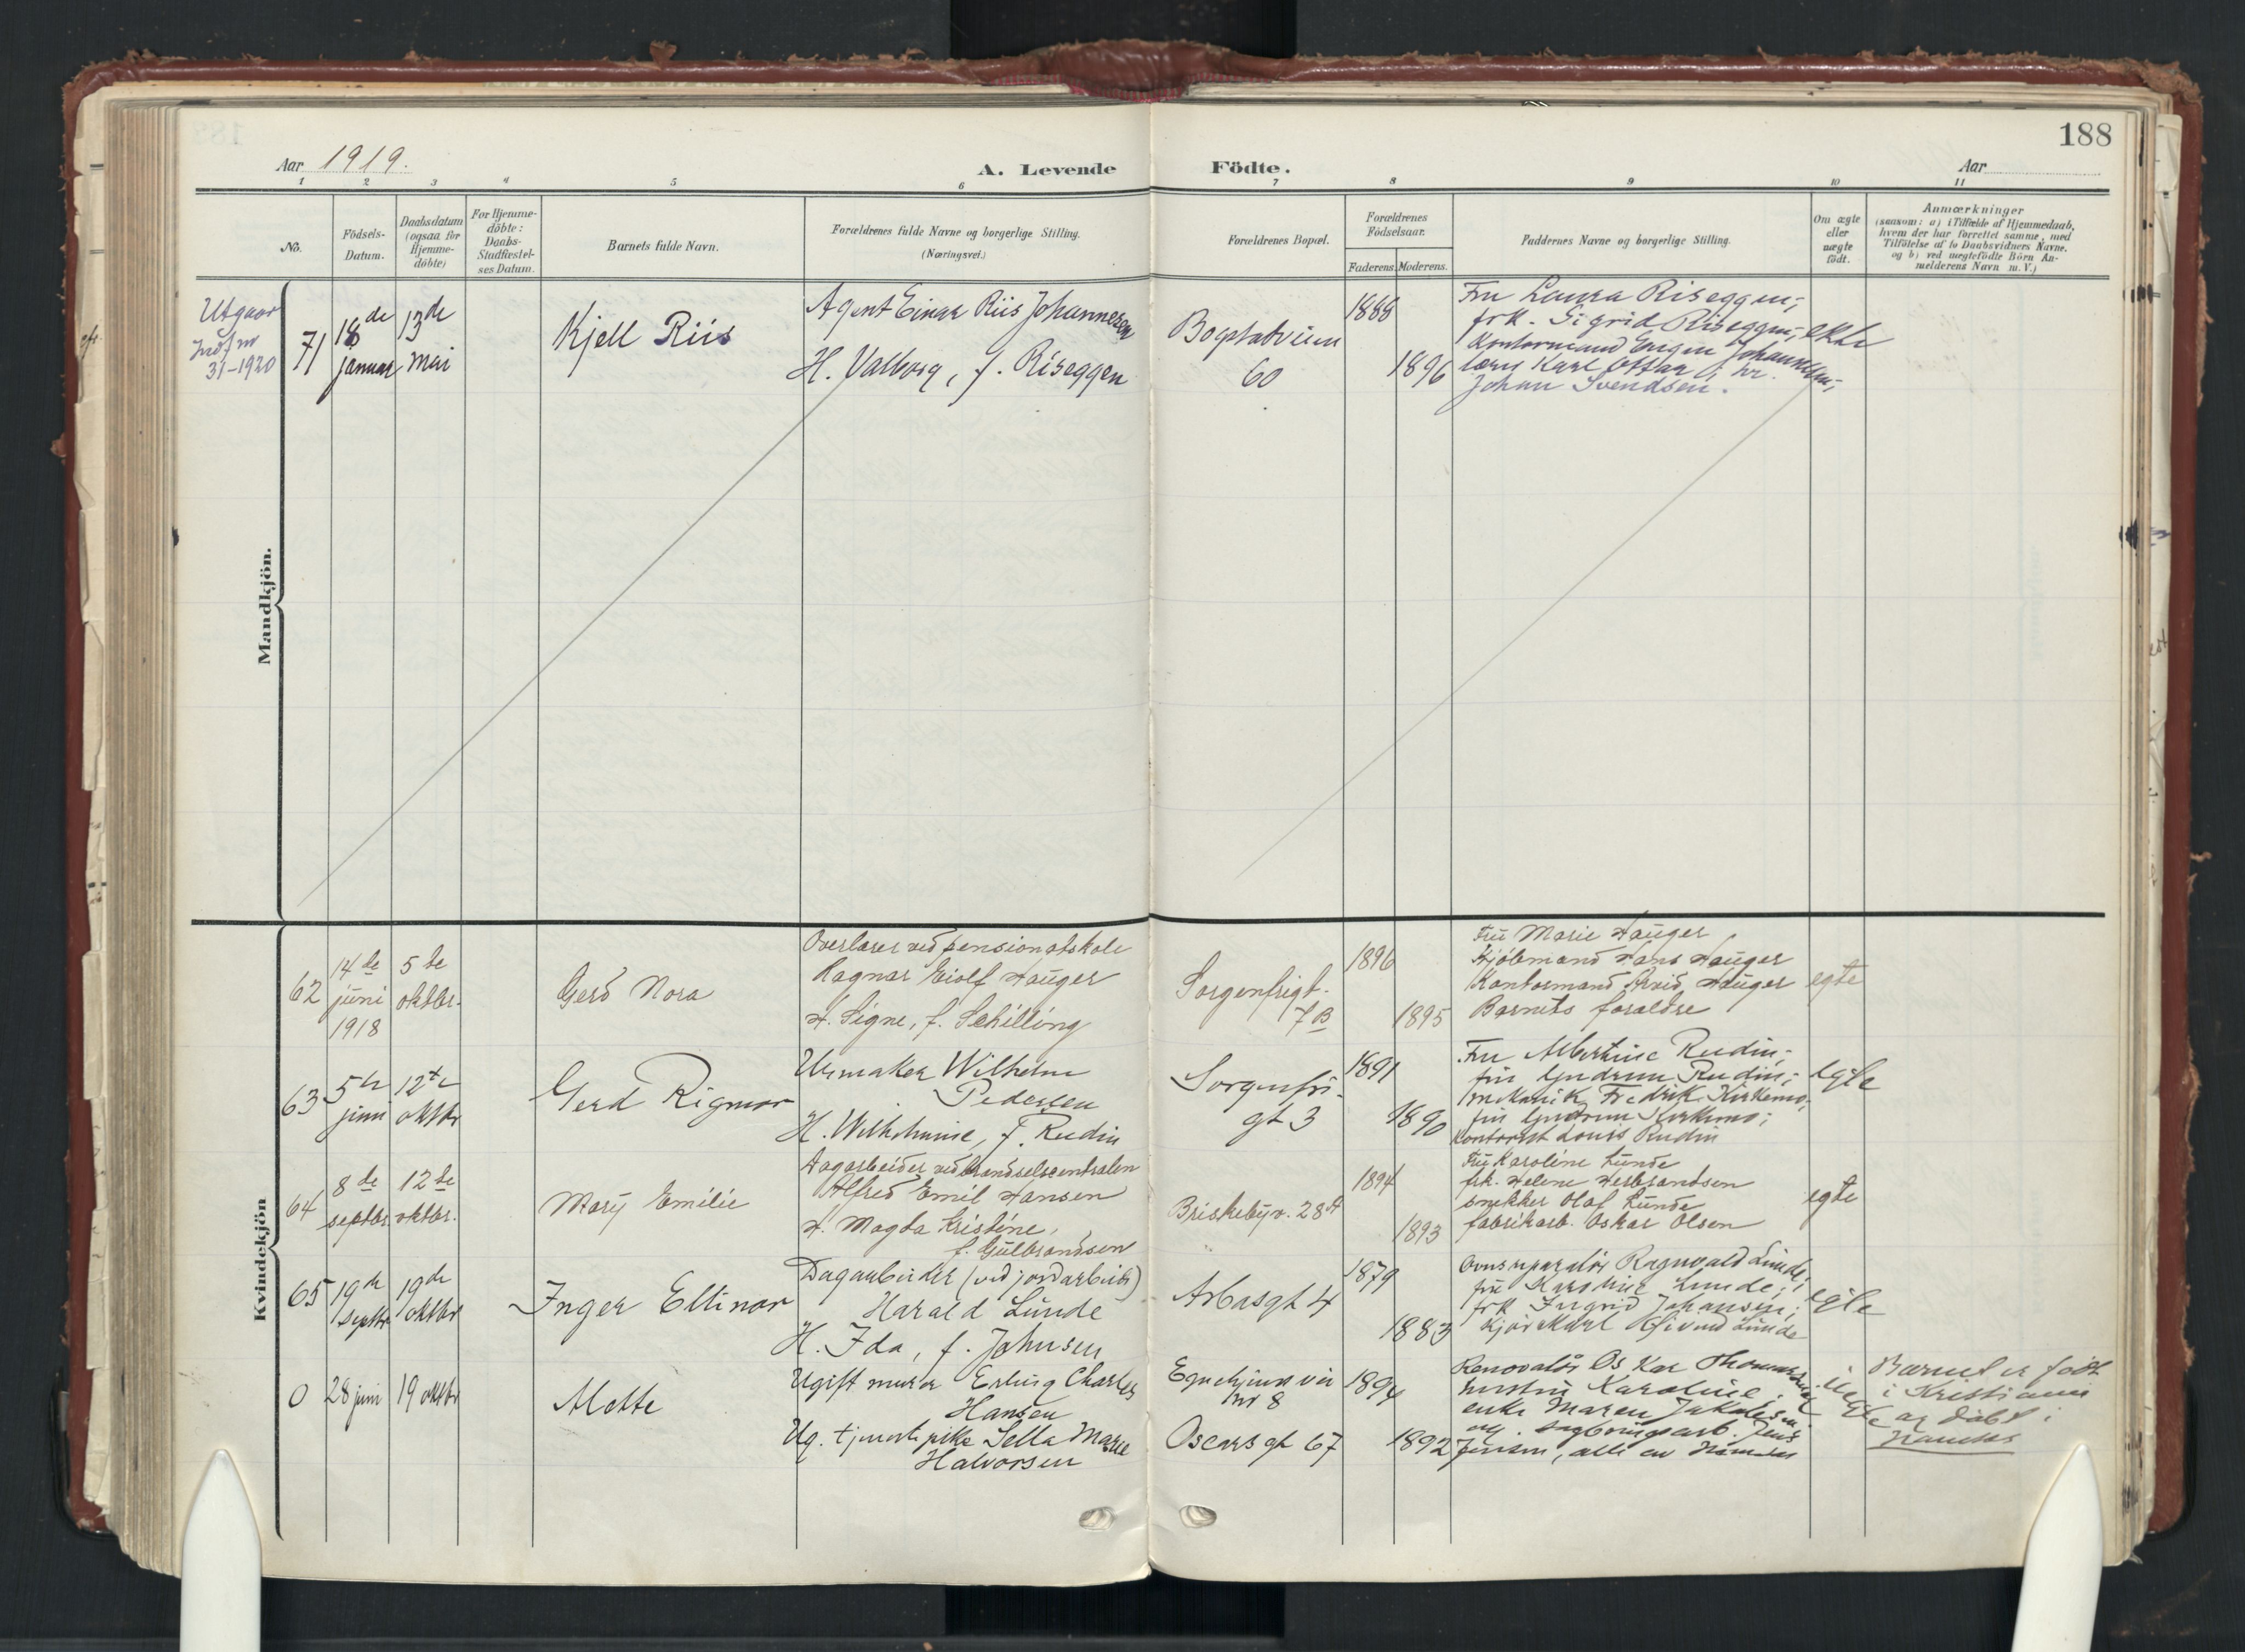 188
Aar 1919.
A. Levende Födte.
Aar
1 2 3 4 5 6 7 8 9 10 11
No.
Födsels-
Datum.
Daabsdatum
(ogsaa for
Hjemme-
döbte)
For Hjemme-
döbte:
Daabs-
Stadfæstel-
ses Datum.
Barnets fulde Navn.
Forældrenes fulde Navne og borgerlige Stilling.
(Næringsvei.)
Forældrenes Bopæl.
Forældrenes
Födselsaar.
Faderens. Moderens.
Faddernes Navne og borgerlige Stilling.
Om ægte
eller
uægte
födt.
Anmærkninger
(saasom: a) i Tilfælde af Hjemmedaab,
hvem der har forrettet samme, med
Tilföielse af to Daabsvidners Navne.
og b) ved uægtefödte Börn An-
melderens Navn m. V.)
Mandkjön.
Utgaar
31-1920
71
18 de
januar
13 de
mai
Kjell Riis
Agent Einar Riis Johannesen
H. Valborg, f. Riseggen
Bogstadveien
60
1888
1896
Fru Laura Riseggen;
frk. Sigrid Riseggen;
Kontormand Eugen Johannesen;
Karl Ottar
Johan Svendsen.
ekte
Kvindekjön
62
14 de
juni
1918
5 te
oktbr.
Gerd Nora
Overlærer ved pensionatskole
Ragnar Eiolf Hauger
H. Signe, f. Schilling
Sorgenfrigt.
7 B
1896
1895
Fru Marie Hauger
Kjöbmand Hans Hauger
Kontormand Arvid Hauger
Barnets foraldre
egte
63
5 te
juni
12 te
oktbr
Gerd Rigmor
Urmaker Wilhelm
Pedersen
H. Wilhelmine, f. Rudin
Sorgenfri.
gt 3
1891
1890
Fru Albertine Rudin;
fru Gudrun Rudin;
mekanik Fredrik Kirkemo;
fru Gudrun Kirkemo;
Kontorist Louis Rudin
egte
64
8 de
septbr.
12 te
oktbr.
Mary Emilie
Dagarbeider ved brændselscentralen
Alfred Emil Hansen
H. Magda Kristine,
f. Gulbrandsen
Briskebyv. 28 A
1894
1893
Fru Karoline Lunde
frk. Helene Herbrandsen
snekker Olaf Lunde
fabrikarb. Oskar Olsen
egte
65
19 de
septbr
19 de
oktbr
Inger Ellinor
Dagarbeider (ved jordarbeide)
Harald Lunde
H. Ida, f. Johnsen
Arbosgt 4
1879
1883
Ovnsreparatör Ragnvald Lunde;
fru Karoline Lunde;
frk Ingrid Johansen;
Öivind Lunde
egte
0
28 juni
19 oktbr
Mette
Ugift murer Erling Charles
Hansen
Ug. tjenestepike Sella Marie
Halvorsen
nr 8
Oscars gt 67
1894
1892
Renovatör Oskar
hustru Karoline;
enke Maren Jakobsen;
ug. Jens
Jensen, alle av
uegte
Barnet er födt
i Kristiania
og döbt i